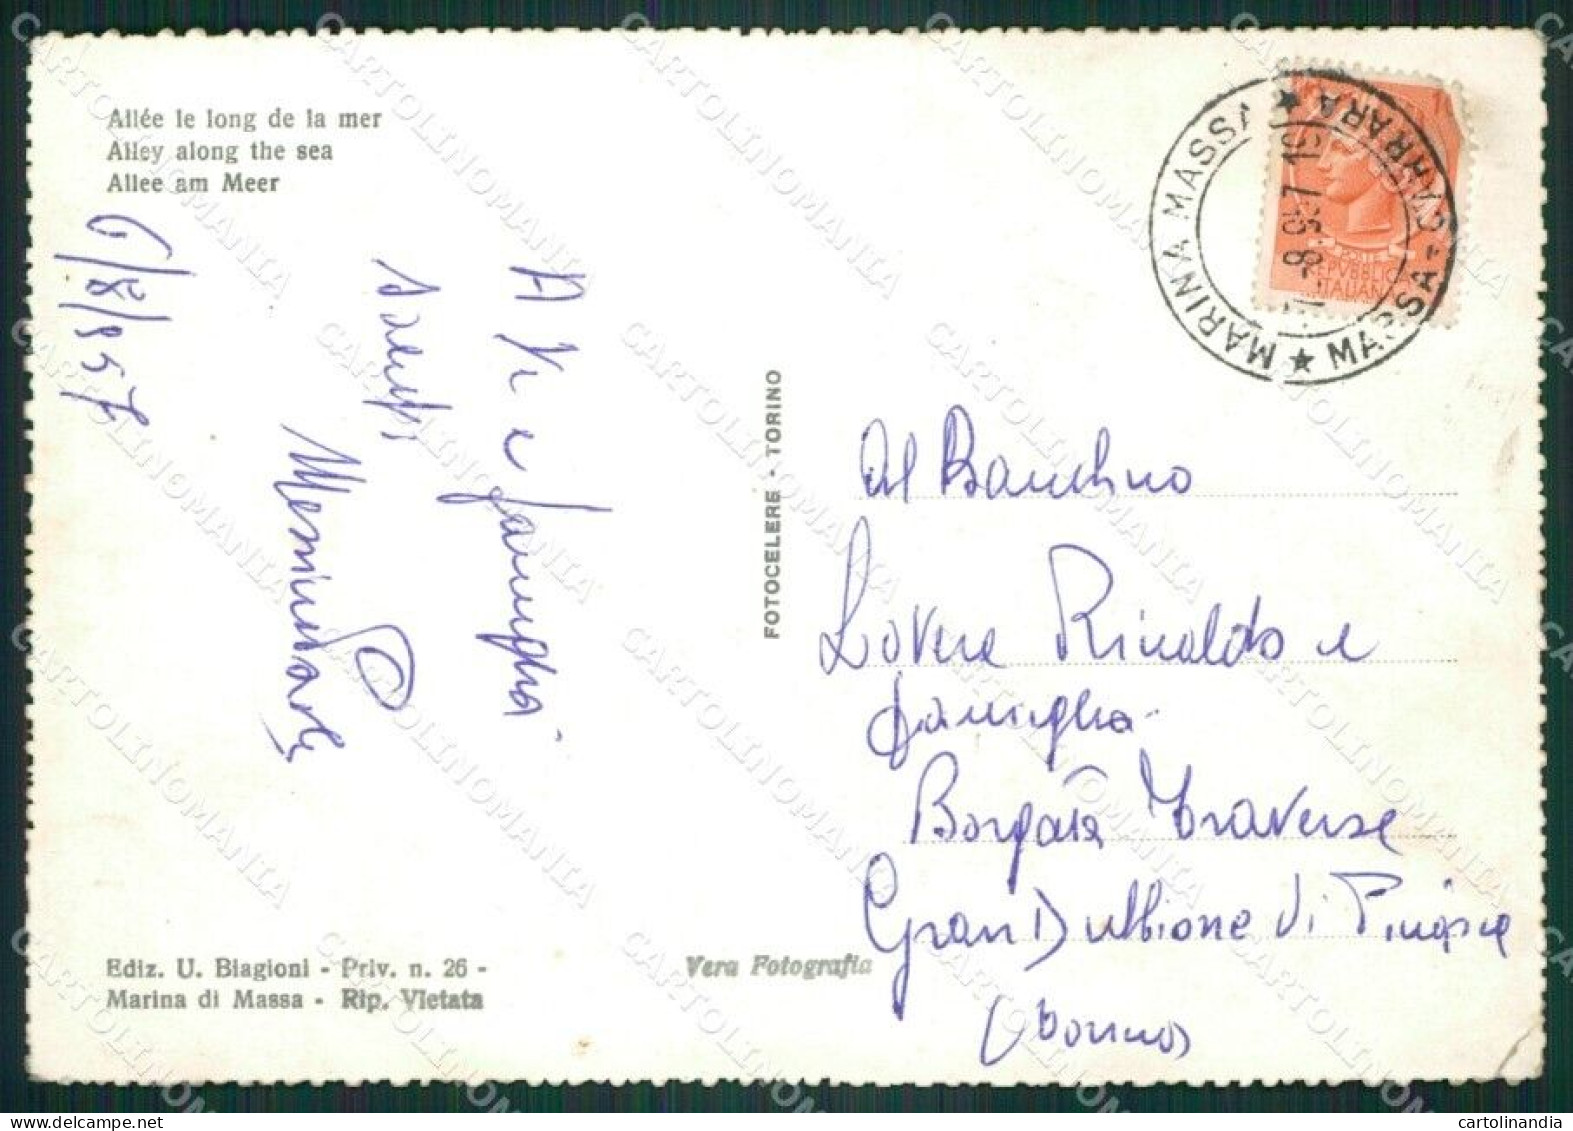 Allée le long de la mer
Alley along the sea
Allee am Meer
6/8/957
A Te e famiglia
saluti
FOTOCELERE - TORINO
MARINA MASSA ★ MASSA-CARRARA ★
-8.957 19
POSTE
REPVBBLICA
ITALIANA
Al Bambino
Lovera Rinaldo e
famiglia
Borgata Traverse
Gran Dubbione di Pinasca
(Torino)
Ediz. U. Biagioni - Priv. n. 26 -
Marina di Massa - Rip. Vietata
Vera Fotografia
CARTOLINOMANIA
cartolinandia